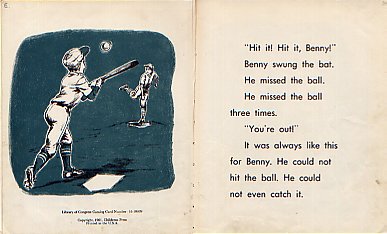 Library of Congress Catalog Card Number:
Copyright, 1961, Childrens Press
Printed in the U.S.A.
"Hit it! Hit it, Benny!"
Benny swung the bat.
He missed the ball.
He missed the ball
three times.
"You're out!"
It was always like this
for Benny. He could not
hit the ball. He could
not even catch it.